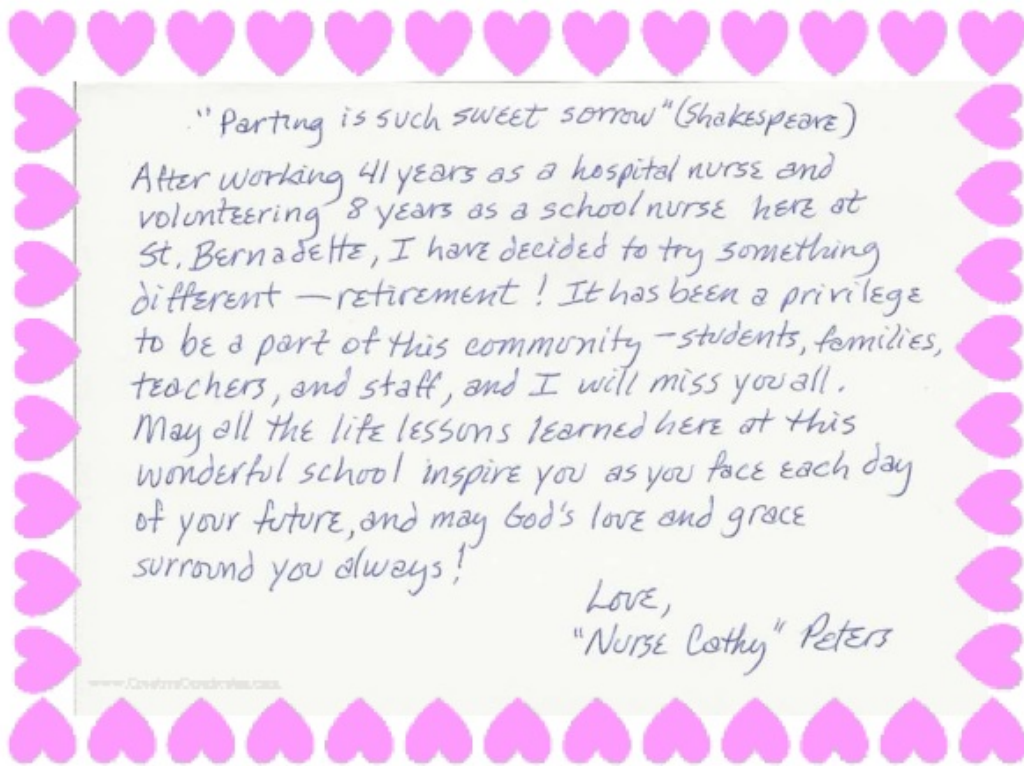 "Parting is such sweet sorrow" (Shakespeare)
After working 41 years as a hospital nurse and
volunteering 8 years as a school nurse here at
St. Bernadette, I have decided to try something
different — retirement! It has been a privilege
to be a part of this community — students, families,
teachers, and staff, and I will miss you all.
May all the life lessons learned here at this
wonderful school inspire you as you face each day
of your future, and may God's love and grace
surround you always!
Love,
"Nurse Cathy" Peters